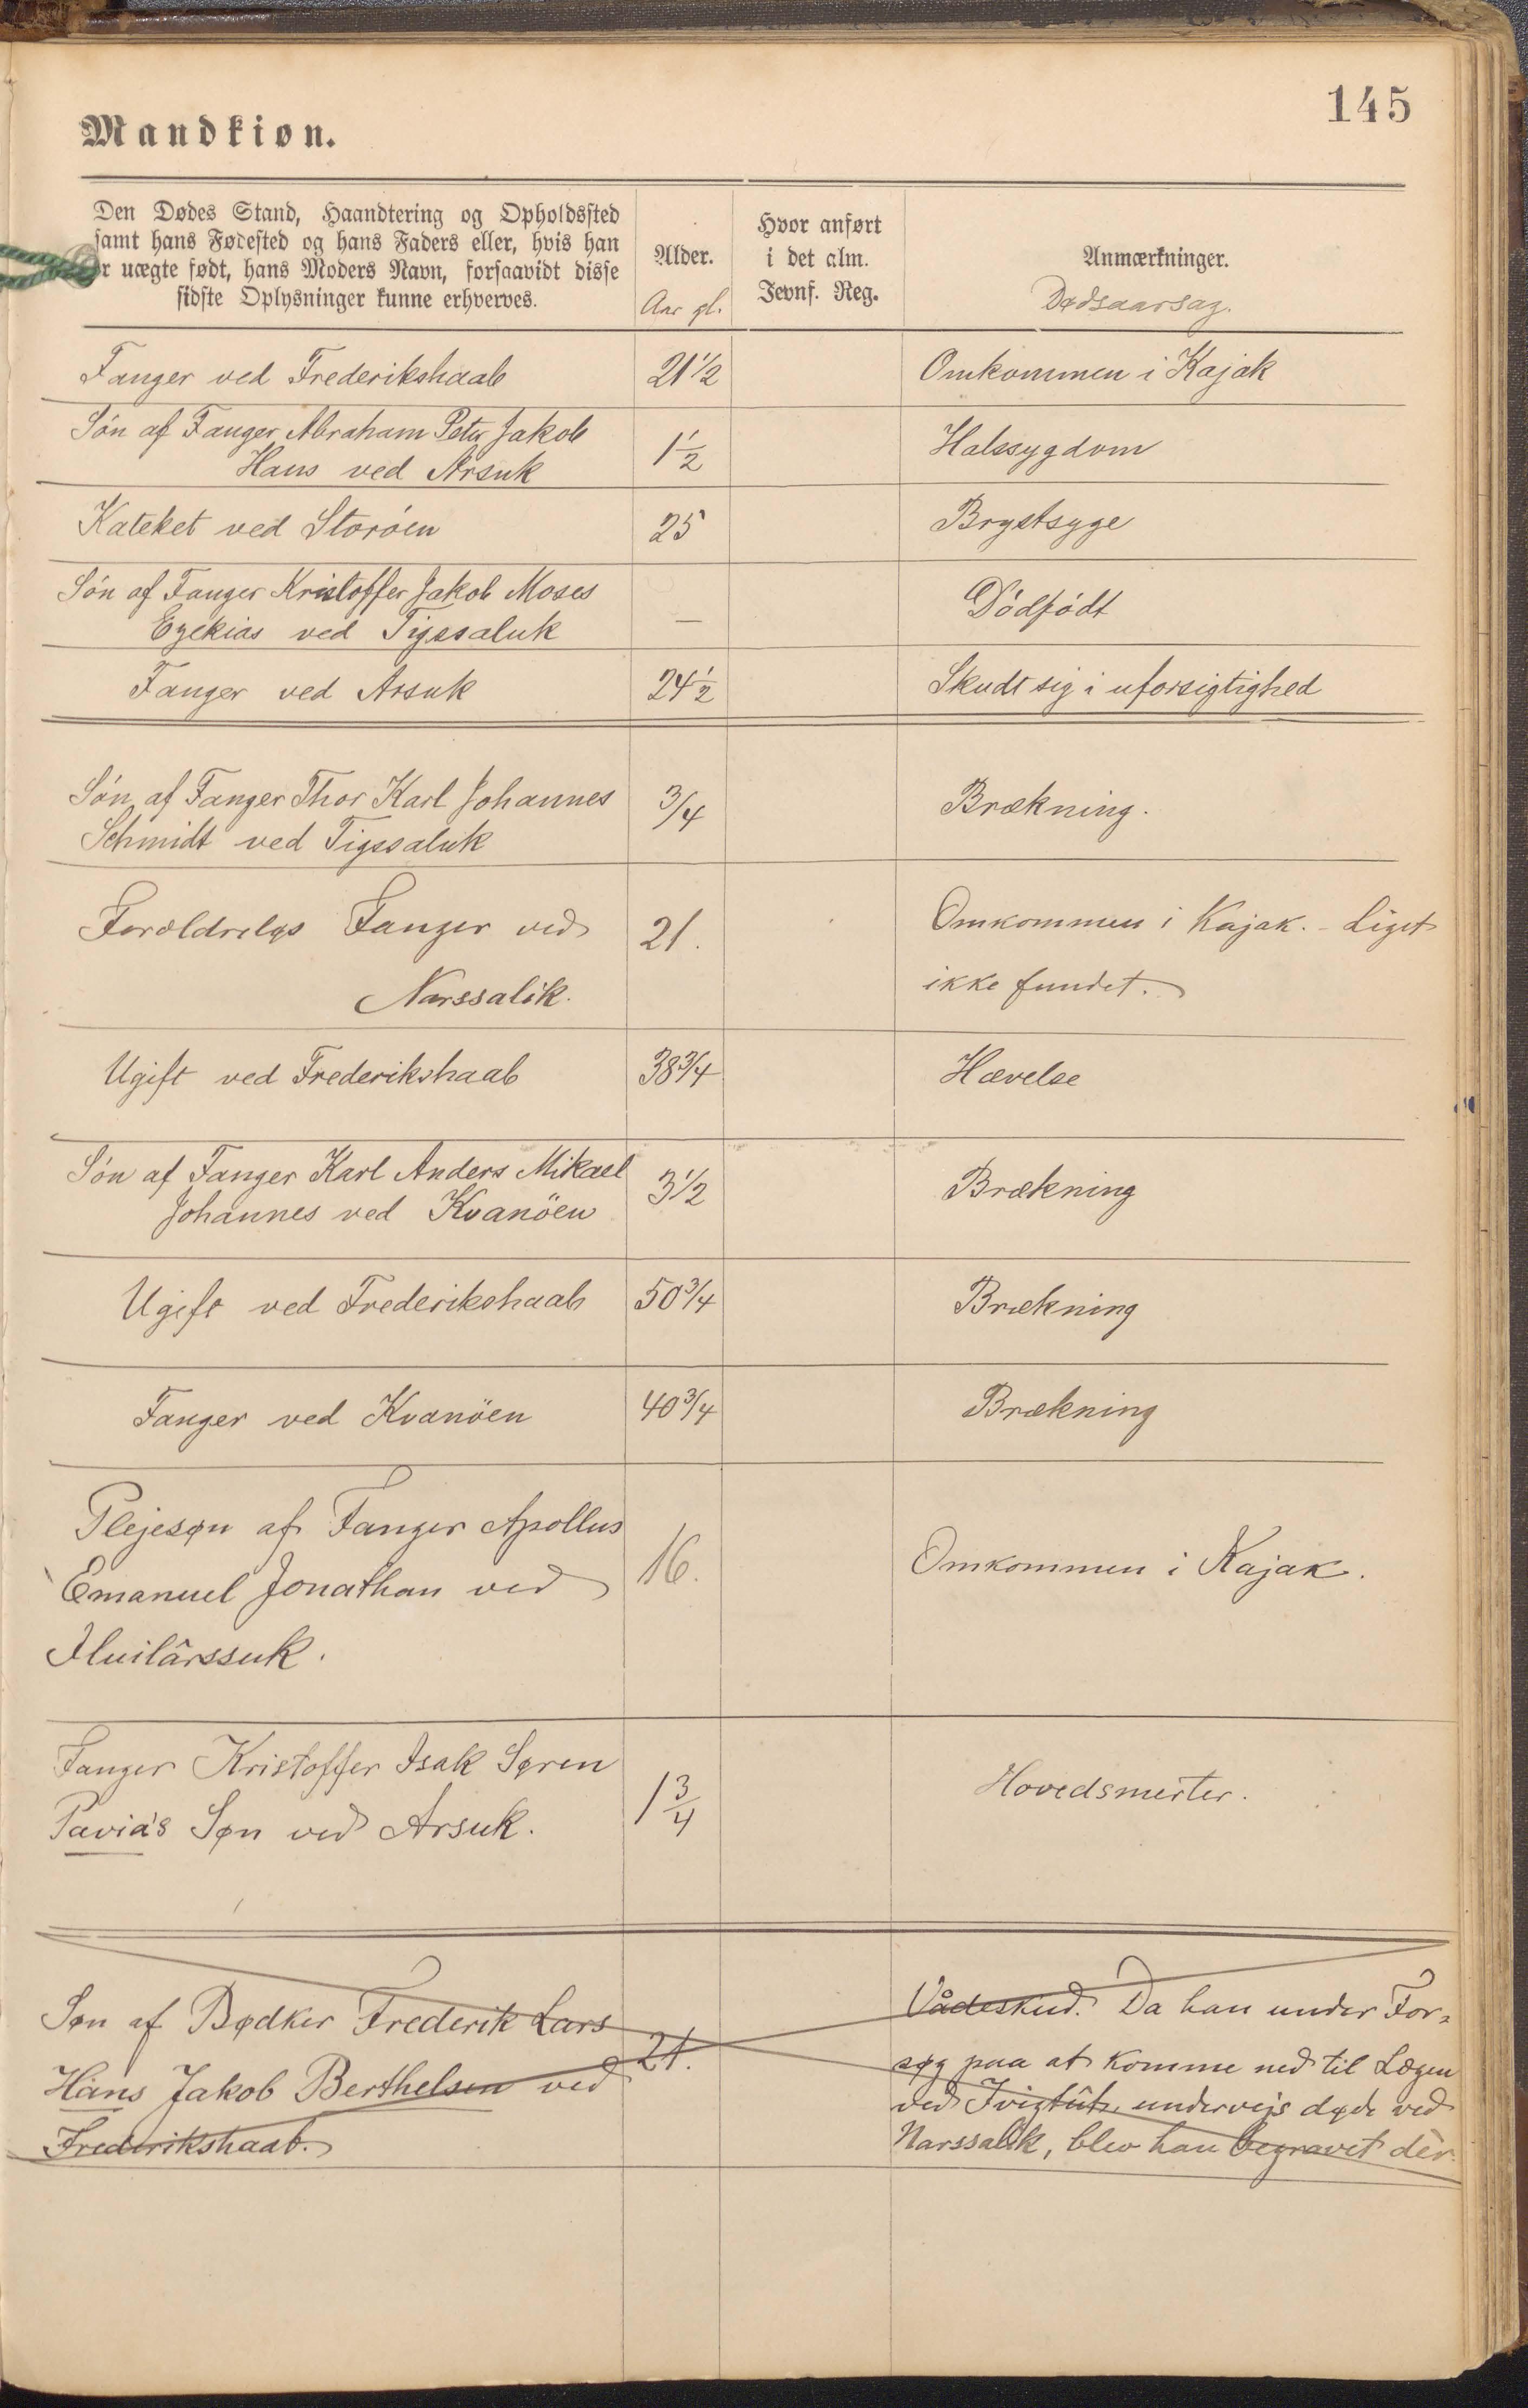 145
Mandkiøn.
Den Dødes Stand, Haandtering og Opholdssted
samt hans Fødested og hans Faders eller, hvis han
er uægte født, hans Moders Navn, forsaavidt disse
sidste Oplysninger kunne erhverves.
Alder.
Aar gl.
Hvor anført
i det alm.
Jevnf. Reg.
Anmærkninger.
Dødsaarsag.
Fanger ved Frederikshaab 21 1/2 Omkommen i Kajak
Søn af Fanger Abraham Peter Jakob
Hans ved Arsuk 1 1/2 Halssygdom
Kateket ved Storöen 25 Brystsyge
Søn af Fanger Kristoffer Jakob Moses
Ezekias ved Tigssaluk — Dödfödt
Fanger ved Arsuk 24 1/2 Skudt sig i uforsigtighed
Søn af Fanger Thor Karl Johannes
Schmidt ved Tigssaluk 3/4 Brækning.
Forældreløs Fanger ved 21. Omkommen i Kajak. - Liget
Narssalik. ikke fundet.
Ugift ved Frederikshaab 38 3/4 Hævelse
Søn af Fanger Karl Anders Mikael
Johannes ved Kvanöen 3 1/2 Brækning
Ugift ved Frederikshaab 50 3/4 Brækning
Fanger ved Kvanöen 40 3/4 Brækning
Plejesøn af Fanger Apollus
Emanuel Jonathan ved 16. Omkommen i Kajak.
Iluilârssuk.
Fanger Kristoffer Isak Søren
Pavia's Søn ved Arsuk. 1 3/4 Hovedsmerter.
Søn af Bødker Frederik Lars 21. Vådeskud. Da han under For=
Hans Jakob Berthelsen ved søg paa at komme ned til Lægen
Frederikshaab. ved Ivigtût, undervejs døde ved
Narssalik, blev han begravet dèr.